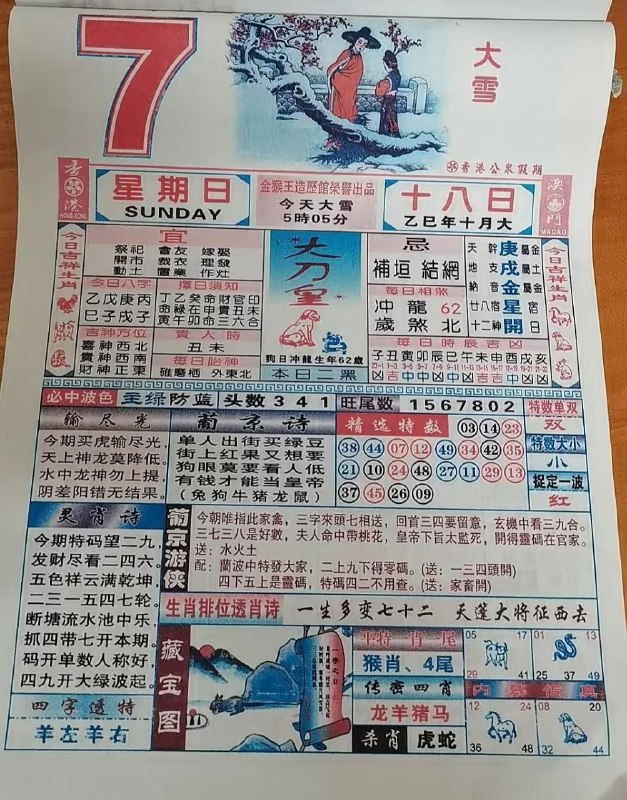 7
大雪
香港公眾假期
香港
HONG KONG
星期日
SUNDAY
金猴王造歷館榮譽出品
今天大雪
5時05分
十八日
乙巳年十月大
澳門
MACAO
今日吉祥生肖
宜
祭祀 會友 嫁娶
開市 裁衣 理發
動土 置業 作灶
今日八字
乙戊庚丙
巳子戌子
擇日須知
丁乙癸命財官印
命祿在申貴丑未
寅午卯命三六合
吉神方位
喜神西北
貴神西南
財神正東
貴人時
丑未
每日胎神
碓磨栖 外東北
大刀皇
狗日冲龍生年62歲
本日二黑
忌
補垣 結網
每日相煞
冲龍62
歲煞北
天幹庚屬金
地支戌屬土
納音金屬金
廿八宿星宿
十二神開日
每日時辰吉凶
子丑寅卯辰巳午未申酉戌亥
今日吉祥生肖
必中波色 主绿防蓝 头数341 旺尾数 1567802
特数单双
双
特数大小
小
捉定一波
红
输尽光
今期买虎输尽光,
天上神龙莫降低。
水中龙神勿上提,
阴差阳错无结果。
葡京诗
单人出街买绿豆
街上红果又想要
狗眼莫要看人低
有钱才能当皇帝
(兔狗牛猪龙鼠)
精选特数 03 14 23
38 44 07 12 49 34 42 35
21 10 24 48 27 11 29 13
37 45 26 09
灵肖诗
今期特码望二九,
发财尽看二四六。
五色祥云满乾坤,
二三一五四七轮。
断塘流水池中乐,
抓四带七开本期。
码开单数人称好,
四九开大绿波起。
四字透特
羊左羊右
葡京游侠
今朝唯指此家禽,三字來頭七相送,回首三四要留意,玄機中看三九合。
三七三八是好數,夫人命中帶桃花,皇帝下旨太監死,開得靈碼在官家。
送:水火土
配:蘭波中特發大家,二上九下得零碼。(送:一三四頭開)
四下五上是靈碼,特碼四二不用查。(送:家畜開)
生肖排位透肖诗 一生多变七十二 天蓬大将征西去
藏宝图
平特一肖一尾
猴肖、4尾
传密四肖
龙羊猪马
杀肖 虎蛇
05 17 01 13
29 41 25 37 49
内幕传真
12 24 08 20
36 48 32 44